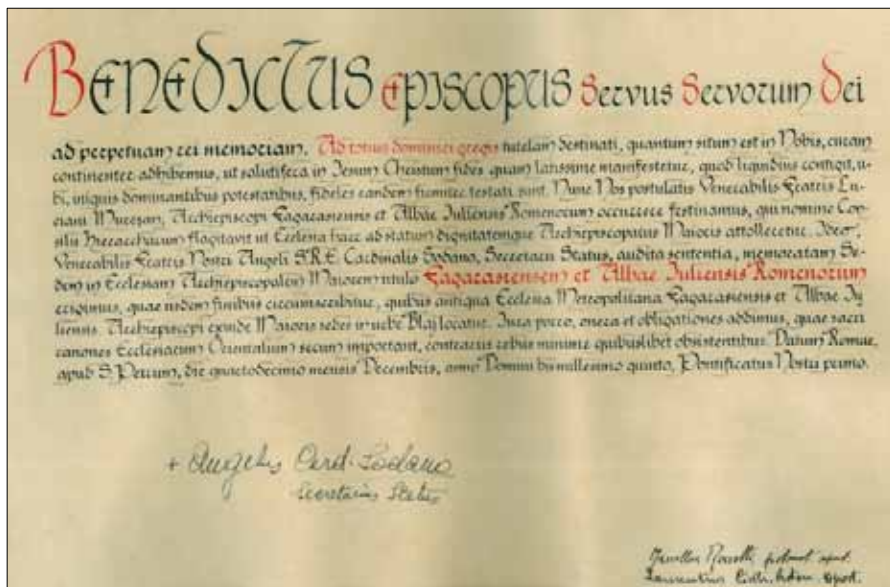 BENEDICTUS EPISCOPUS Servus Servorum Dei
ad perpetuam rei memoriam. Ad totius dominici gregis tutelam destinati, quantum situm est in Nobis, curam
continenter adhibemus, ut salutifera in Iesum Christum fides quam latissime manifestetur, quod liquidius contigit, u-
bi, iniquis dominantibus potestatibus, fideles eandem firmiter testati sunt. Nunc Nos postulatis Venerabilis Fratris Lu-
ciani Mureşan, Archiepiscopi Fagarasiensis et Albae Iuliensis Romenorum occurrere festinamus, qui nomine Con-
silii Hierarcharum flagitavit ut Ecclesia haec ad statum dignitatemque Archiepiscopatus Maioris attolleretur. Ideo,
Venerabilis Fratris Nostri Angeli S.R.E. Cardinalis Sodano, Secretarii Status, audita sententia, memoratam Se-
dem in Ecclesiam Archiepiscopalem Maiorem titulo Fagarasiensem et Albae Iuliensis Romenorum
erigimus, quae iisdem finibus circumscribitur, quibus antiqua Ecclesia Metropolitana Fagarasiensis et Albae Iu-
liensis. Archiepiscopi exinde Maioris sedes in urbe Blaj locatur. Iura porro, onera et obligationes addimus, quae sacri
canones Ecclesiarum Orientalium secum important, contrariis rebus minime quibuslibet obsistentibus. Datum Romae,
apud S. Petrum, die quartodecimo mensis Decembris, anno Domini bis millesimo quinto, Pontificatus Nostri primo.
+ Angelus Card. Sodano
Secretarius Status